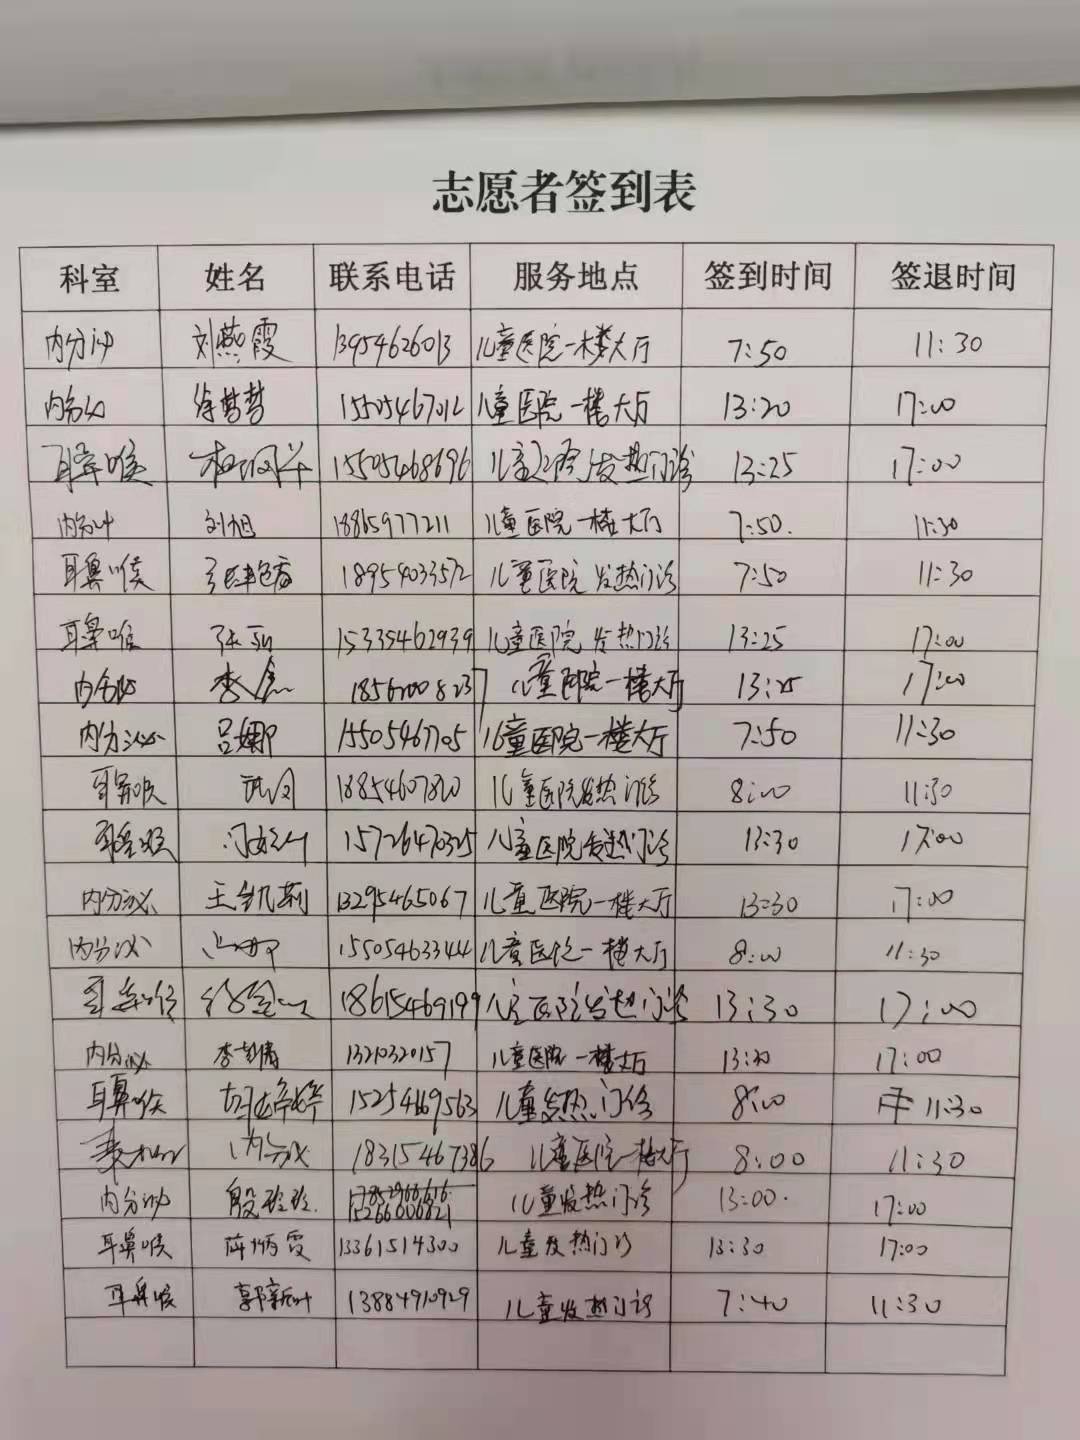 志愿者签到表
科室 姓名 联系电话 服务地点 签到时间 签退时间
内分泌 刘燕霞 13954626013 儿童医院一楼大厅 7:50 11:30
内分泌 徐梦梦 15505467012 儿童医院一楼大厅 13:20 17:00
耳鼻喉 15505468696 儿童医院发热门诊 13:25 17:00
内分泌 刘旭 18865977211 儿童医院一楼大厅 7:50. 11:30
耳鼻喉 18954033572 儿童医院发热门诊 7:50 11:30
耳鼻喉 15335462939 儿童医院发热门诊 13:25 17:00
内分泌 儿童医院一楼大厅 13:25 17:00
内分泌 吕娜 15505467105 儿童医院一楼大厅 7:50 11:30
耳鼻喉 18854607820 儿童医院发热门诊 8:00 11:30
耳鼻喉 15726470325 儿童医院发热门诊 13:30 17:00
内分泌 王凯莉 13295465067 儿童医院一楼大厅 13:30 17:00
内分泌 15505463344 儿童医院一楼大厅 8:00 11:30
耳鼻喉 18615469199 儿童医院发热门诊 13:30 17:00
内分泌 李彭倩 13210320157 儿童医院一楼大厅 13:20 17:00
耳鼻喉 胡婷婷 15254669563 儿童发热门诊 8:00 11:30
内分泌 18315467386 儿童医院一楼大厅 8:00 11:30
内分泌 殷玲玲. 15266000821 儿童发热门诊 13:00. 17:00
耳鼻喉 薛炳霞 13361514300 儿童发热门诊 13:30 17:00
耳鼻喉 郭新叶 13884910929 儿童发热门诊 7:40 11:30